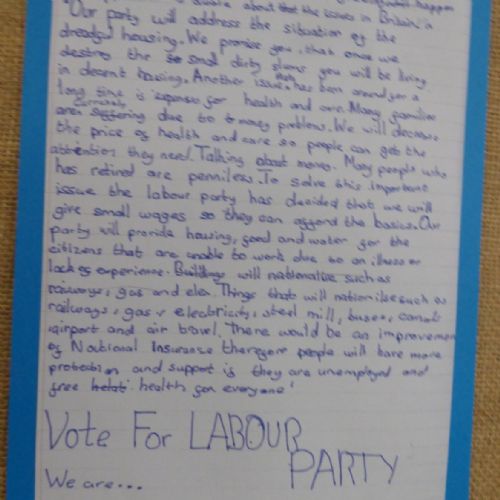 aware about that the issues in Britain.
'Our party will address the situation of the
dreadful housing. We promise you, that once we
destroy the small dirty slums you will be living
in decent housing. Another issue that has been around for a
long time is expenses for health and care. Many families
are currently suffering due to money problems. We will decrease
the price of health and care so people can get the
attention they need. Talking about money. Many people who
has retired are penniless. To solve this important
issue the labour party has decided that we will
give small wages so they can afford the basics. Our
party will provide housing, food and water for the
citizens that are unable to work due to an illness or
lack of experience. will nationalise such as
railways, gas and elec. Things that will nationilise such as
railways, gas, electricity, steel mill, buses, canals
airport and air travel. There would be an improvemen
of National Insurance therefore people will have more
and support is they are unemployed and
free health for everyone'
Vote For LABOUR
PARTY
We are...